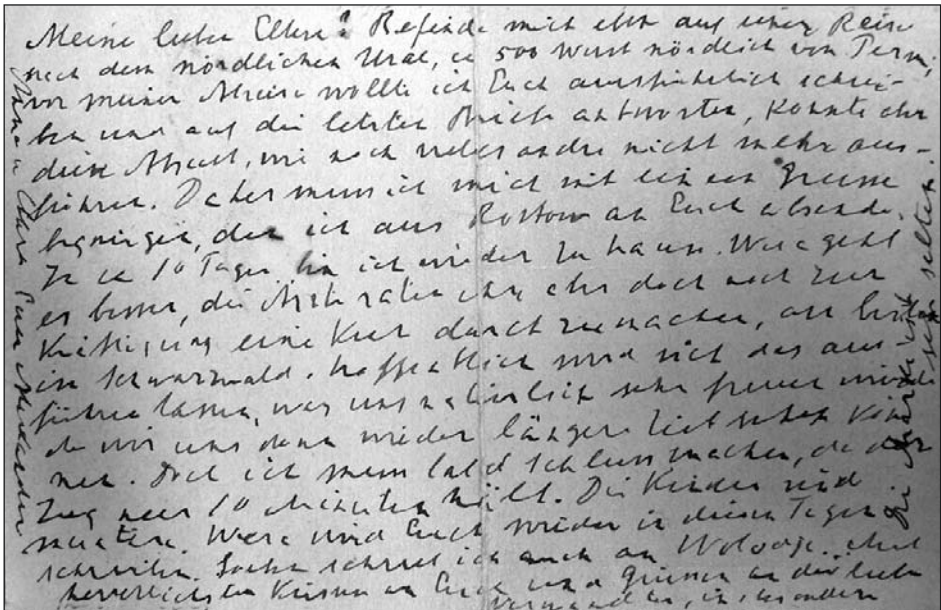 Meine lieben Eltern! Befinde mich eben auf einer Reise
nach dem nördlichen Ural, ca 500 Werst nördlich von Perm,
vor meiner Abreise wollte ich Euch ausführlich schrei-
ben und auf die letzten Briefe antworten, konnte aber
diese Absicht, wie noch vieles andre nicht mehr aus-
führen. Daher muss ich mich mit einem Grusse
begnügen, den ich aus Rostow an Euch absende.
In ca 10 Tagen bin ich wieder zu hause. Wera geht
es besser, die Ärzte raten ihr aber doch noch zur
Kräftigung eine Kur durchzumachen, am besten
im Schwarzwald. Hoffentlich wird sich das aus-
führen lassen, was uns natürlich sehr freuen würde
da wir uns dann wieder längere Zeit sehen kön-
nen. Doch ich muss bald Schluss machen, da der
Zug nur 10 Minuten hält. Die Kinder sind
munter. Wera wird Euch wieder in diesen Tagen
schreiben. Soeben schrieb ich auch an Wolodja.
herzlichsten Küssen an Euch und Grüssen an die lieben
Verwandten, insbesondere
Anna u. Clara Euer Alexander